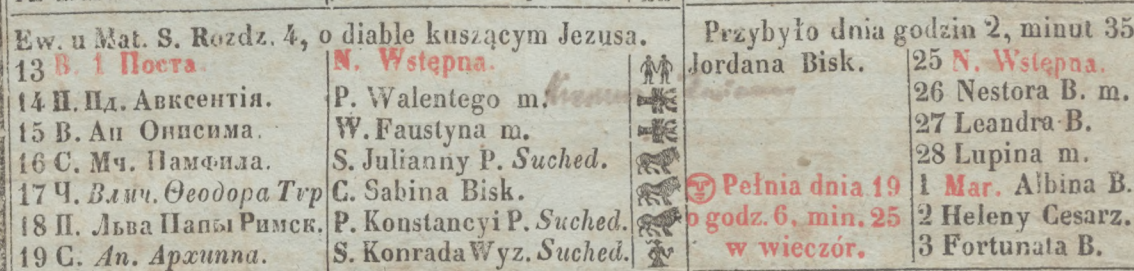 Ew. u Mat. S. Rozdz. 4, o diable kuszącym Jezusa. Przybyło dnia godzin 2, minut 35
13 В. 1 Поста. N. Wstępna. Jordana Bisk. 25 N. Wstępna.
14 П. Пд. Авксентія. P. Walentego m. 26 Nestora B. m.
15 В. Ап Онисима. W. Faustyna m. 27 Leandra B.
16 С. Мч. Памфила. S. Julianny P. Suched. 28 Lupina m.
17 Ч. Влмч. Ѳеодора Тѵр C. Sabina Bisk. Pełnia dnia 19 1 Mar. Albina B.
18 П. Льва Папы Римск. P. Konstancyi P. Suched. o godz. 6, min. 25 2 Heleny Cesarz.
19 С. Ап. Архиппа. S. Konrada Wyz. Suched. w wieczór. 3 Fortunata B.